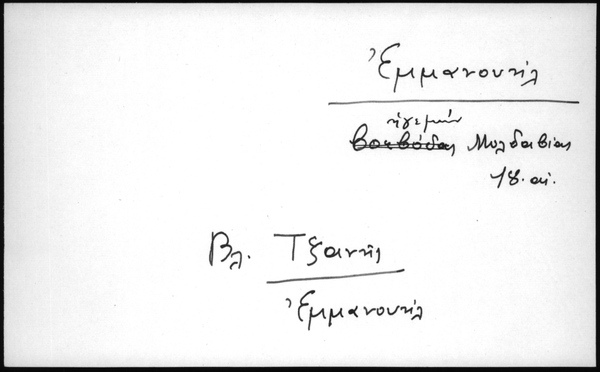 Ἐμμανουήλ
ἡγεμών
βοεβόδας Μολδαβίας
18. αἰ.
Βλ. Τζαννῆς
Ἐμμανουήλ